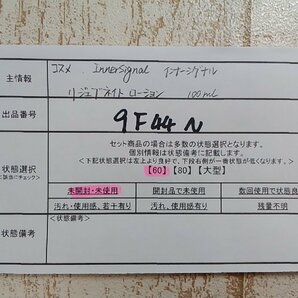 主情報
コスメ . InnerSignal インナーシグナル
リジュブネイト ローション 100ml
出品番号
9F44N
状態選択
セット商品の場合は多数の状態となります。
個別情報は状態備考に記載します。
<下記状態選択は左上より良好で、下段右側が一番状態が低くなります。>
【60】【80】【大型】
未開封・未使用
開封品で未使用
数回使用で状態良
汚れ・使用感、若干有り
汚れ、使用感有り
残量不明
状態備考
<状態備考>